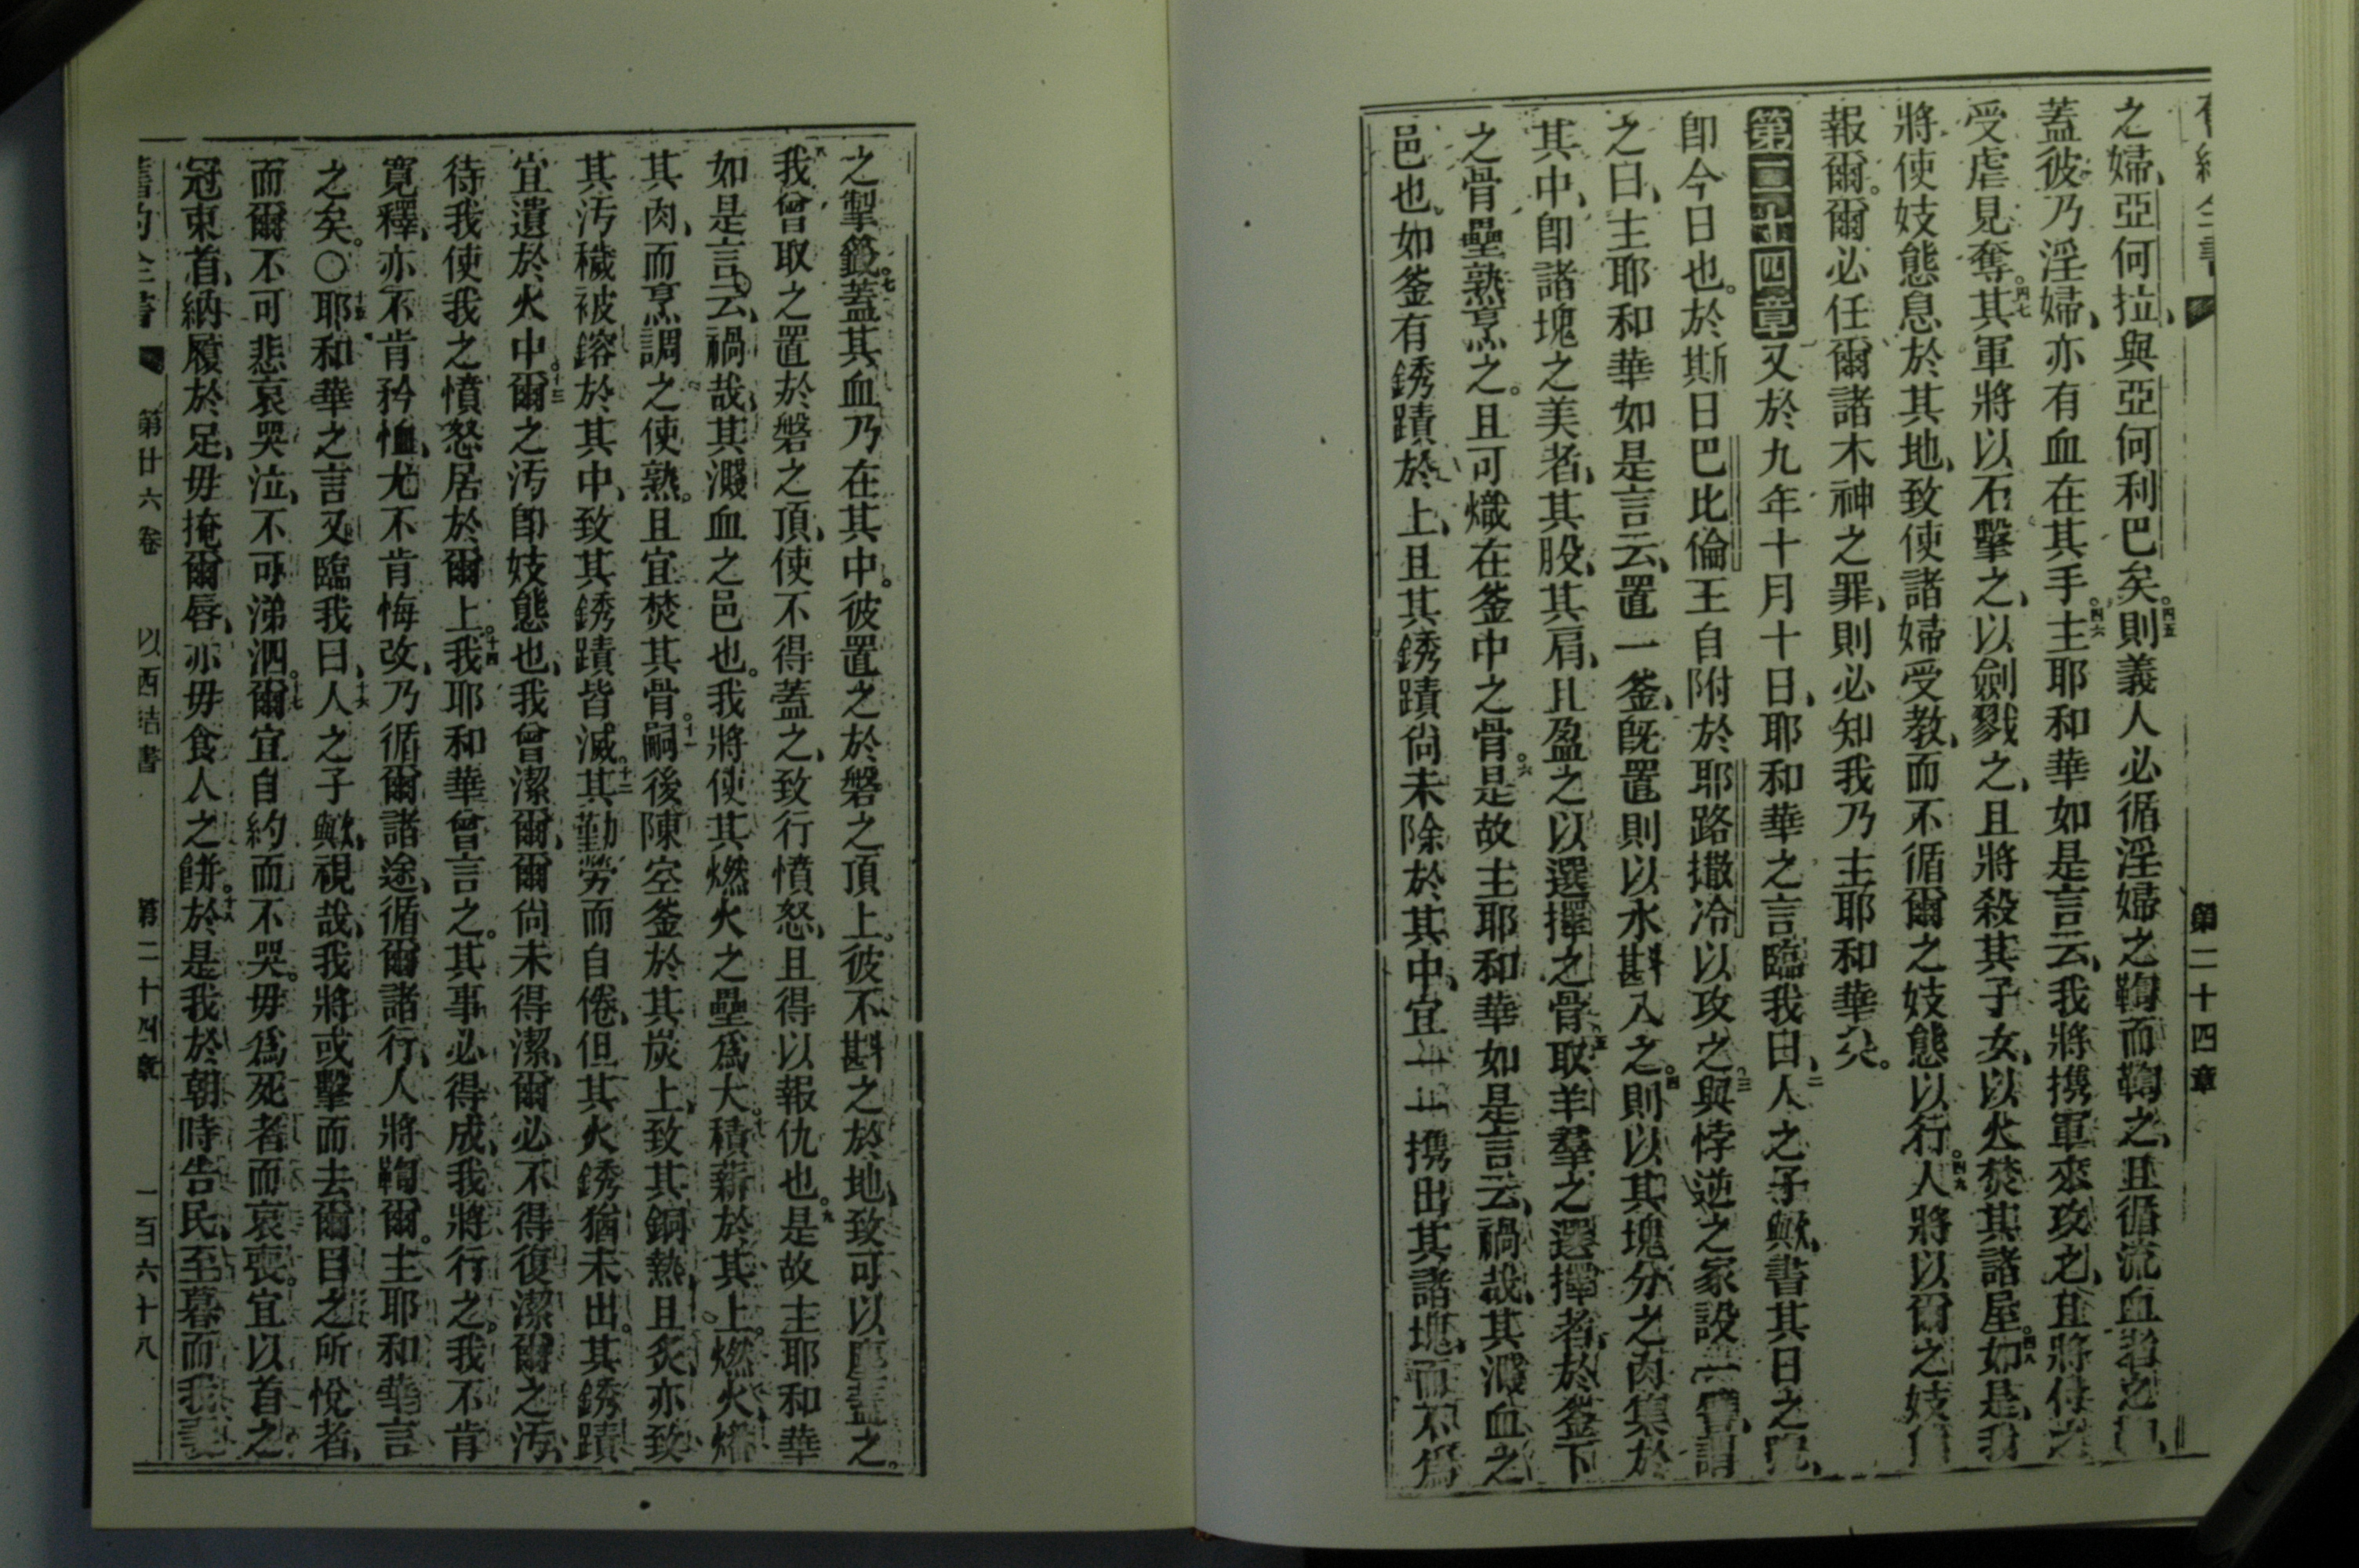 第二十四章
之婦、亞何拉、與亞何利巴矣。四五則義人必循淫婦之鞫而鞫之、且循流血者之
蓋彼乃淫婦、亦有血在其手。四六主耶和華如是言云、我將携軍來攻之、且將付之
受虐見奪。四七其軍將以石擊之、以劍戮之、且將殺其子女、以火焚其諸屋。四八如是、我
將使妓態息於其地、致使諸婦受教、而不循爾之妓態以行。四九人將以爾之妓
報爾。爾必任爾諸木神之罪、則必知我乃主耶和華矣。
第二十四章又於九年十月十日、耶和華之言臨我曰、二人之子歟、書其日之
即今日也。於斯日巴比倫王自附於耶路撒冷以攻之。三與悖逆之家設一譬、謂
之曰、主耶和華如是言云、置一釜、旣置則以水斟入之。四則以其塊分之肉集於
其中、卽諸塊之美者、其股、其肩、且盈之以選擇之骨。五取羊羣之選擇者、於釜下
之骨壘熟烹之。且可熾在釜中之骨。六是故主耶和華如是言云、禍哉、其濺血之
邑也。如釜有銹蹟於上、且其銹蹟尙未除於其中、宜一一携出其諸塊、而不爲
之掣鬮。七蓋其血乃在其中。彼置之於磐之頂上。彼不斟之於地、致可以塵蓋之。
八我曾取之置於磐之頂、使不得蓋之、致行憤怒、且得以報仇也。九是故主耶和華
如是言云、禍哉、其濺血之邑也。我將使其燃火之壘爲大。十積薪於其上。燃火
其肉、而烹調之使熟。且宜焚其骨。十一嗣後陳空釜於其炭上、致其銅熱、且炙、亦致
其汚穢被鎔於其中、致其銹蹟皆滅。十二其勤勞而自倦、但其火銹猶未出。其銹蹟
宜遺於火中。十三爾之汚卽妓態也、我曾潔爾、爾尙未得潔、爾必不得復潔爾之汚、
待我使我之憤怒居於爾上。十四我耶和華曾言之。其事必得成、我將行之。我不肯
寬釋、亦不肯矜恤、尤不肯悔改、乃循爾諸途、循爾諸行、人將鞫爾。主耶和華言
之矣。〇十五耶和華之言又臨我曰、十六人之子歟、視哉、我將或擊而去爾目之所悅者、
而爾不可悲哀哭泣、不可涕泗。十七爾宜自約而不哭。毋爲死者而哀喪。宜以首之
冠束首、納履於足、毋掩爾唇、亦毋食人之餅。十八於是我於朝時告民、至暮而我妻
舊約全書 第廿六卷 以西結書 第二十四章 一百六十八